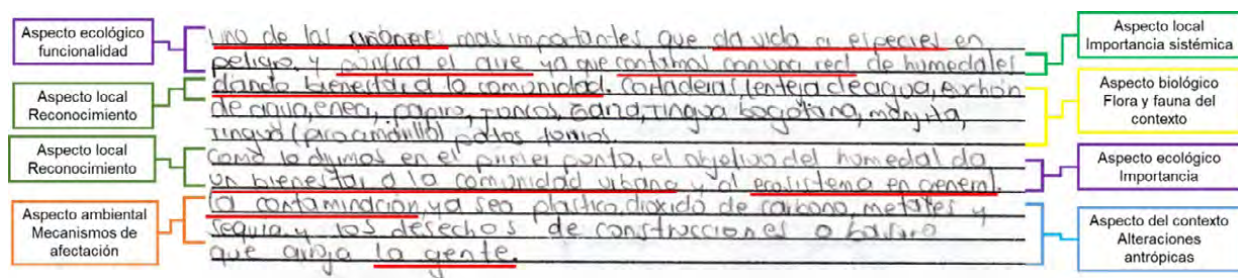 Aspecto ecológico
funcionalidad
Aspecto local
Reconocimiento
Aspecto local
Reconocimiento
Aspecto ambiental
Mecanismos de
afectación
uno de los riñones mas importantes que da vida a especies en
peligro. y purifica el aire ya que contamos con una red de humedales
dando bienestar a la comunidad. Cortaderas, lenteja de agua, buchon
de agua, enea, papiro, juncos, garza, tingua bogotana, monjita,
tingua (pico amarillo) patos
como lo dijimos en el primer punto, el objetivo del humedal da
un bienestar a la comunidad urbana y al ecosistema en general.
la contaminación, ya sea plastico, dioxido de carbono, metales y
sequia, y los desechos de construcciones o basura
que arroja la gente.
Aspecto local
Importancia sistémica
Aspecto biológico
Flora y fauna del
contexto
Aspecto ecológico
Importancia
Aspecto del contexto
Alteraciones
antrópicas